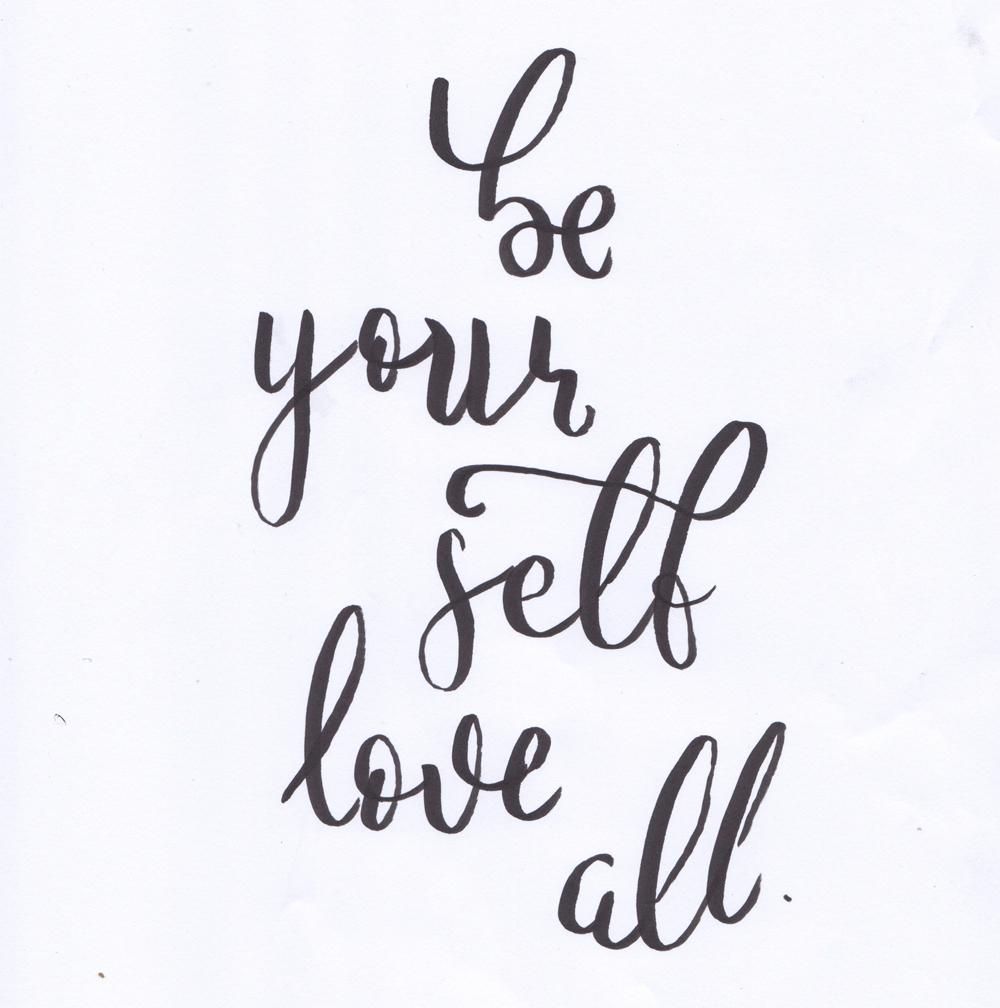 be
your
self
love
all.